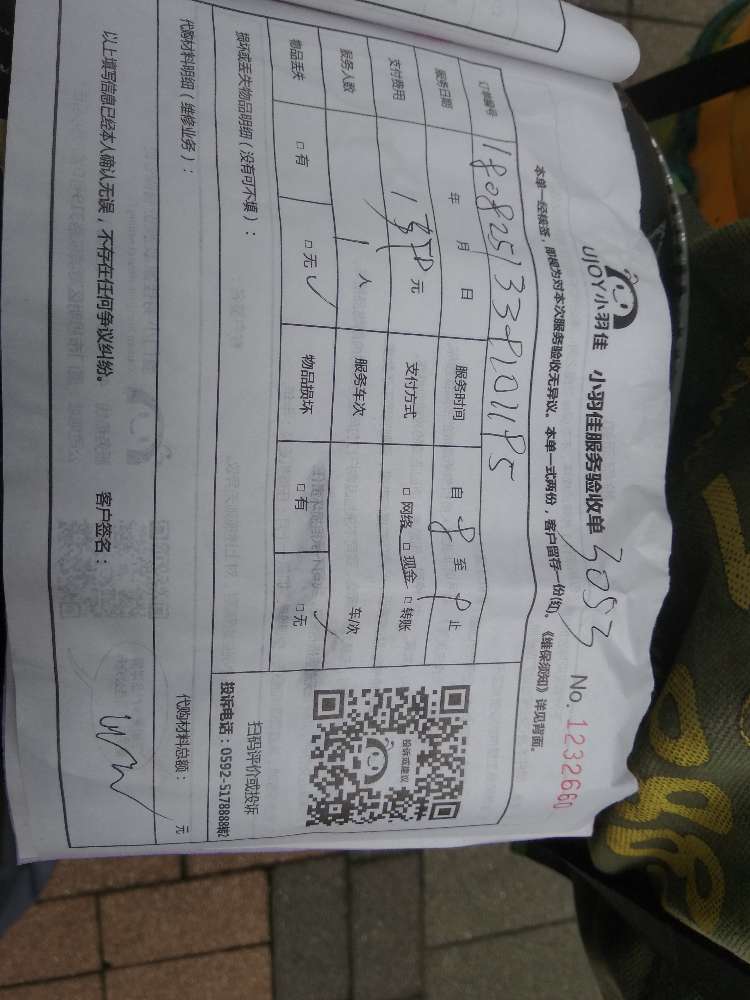 UJOY小羽佳 小羽佳服务验收单 3053 No. 1232660
本单一经核签，即视为对本次服务验收无异议。本单一式两份，客户留存一份(红)。《维保须知》详见背面。
订单编号
服务日期 年 月 日 服务时间 自 8 至 止
支付费用 元 支付方式 □网络 □现金 □转账
服务人数 1 人 服务车次 车/次
物品丢失 □有 □无 ✓ 物品损坏 □有 □无 ✓
投诉或建议
扫码评价或投诉
损坏或丢失物品明细（没有可不填）：
投诉电话：0592-5178888转2
代购材料明细（维修业务）： 代购材料总额： 元
以上填写信息已经本人确认无误，不存在任何争议纠纷。 客户签名：